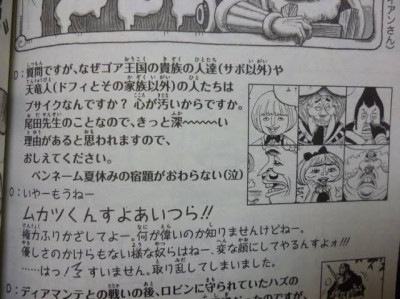 ィアンさん)
D:質問ですが、なぜゴア王国の貴族の人達(サボ以外)や
天竜人(ドフィとその家族以外)の人たちは
ブサイクなんですか? 心が汚いからですか。
尾田先生のことなので、きっと深〜〜〜い
理由があると思われますので、
おしえてください。
ペンネーム夏休みの宿題がおわらない(泣)
O:いやーもうねー
ムカツくんすよあいつら!!
権力ふりかざしてよー。何が偉いのか知りませんけどねー。
優しさのかけらもない様な奴らはねー、変な顔にしてやるんすよォ!!!
……はっ!すいません。取り乱してしまいました。
D:ディアマンテとの戦いの後、ロビンに守られていたハズの